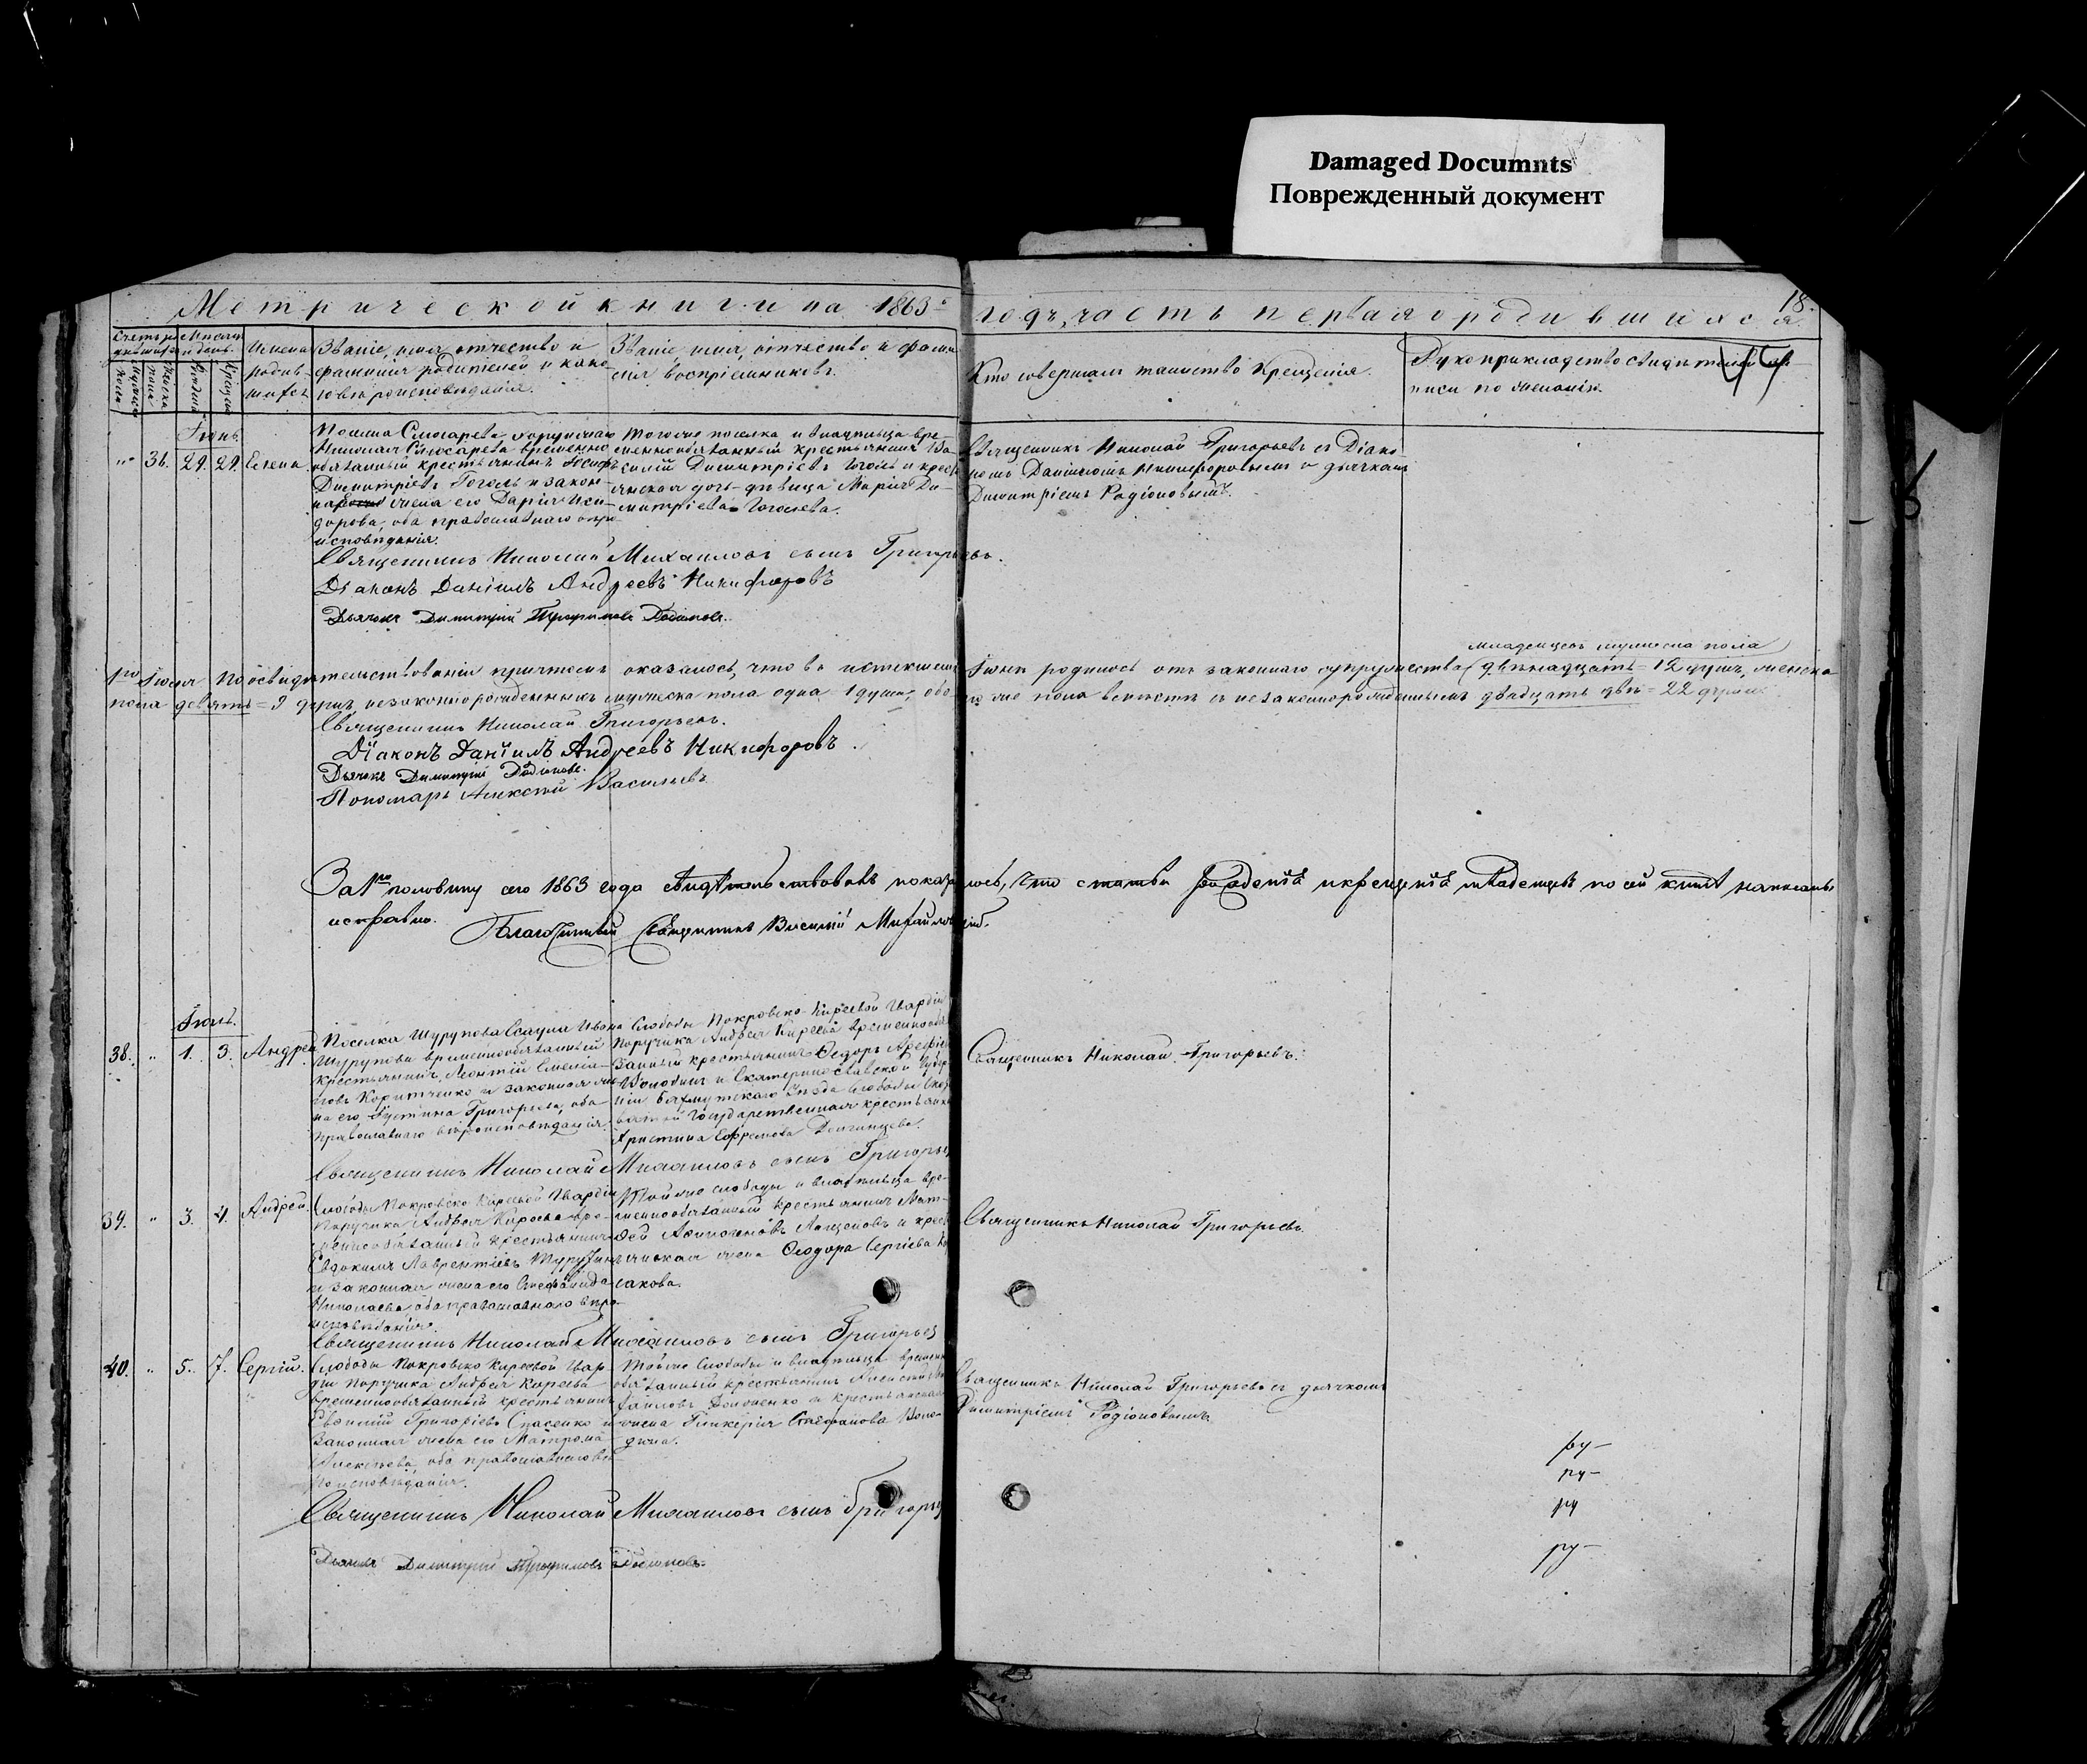 Damaged Documnts
Поврежденный документ
Метрической книги на 1863й годъ, часть первая о родившихся.
18.
Счетъ родившихся
Мѣсяцъ и день.
Имена родившихся
Званіе, имя, отчество и фамилія родителей и какого вѣроисповѣданія.
Званіе, имя, отчество и фамилія воспріемниковъ.
Кто совершалъ таинство Крещенія.
Рукоприкладство свидѣтелей записи по желанію.
Іюнь.
29. 29. Елена
Николая Слюсарева временно
обязанный крестьянинъ
Димитріевъ Гоголь и закон-
ная жена его Дарія Иси-
дорова, оба православнаго вѣро-
исповѣданія.
Тогоже поселка и владѣльца вре-
меннообязанный крестьянинъ Ва-
силій Димитріевъ Гоголь и кресть-
янская дочь-дѣвица Марія Ди-
митріева Гоголева.
Священникъ Николай Григорьевъ съ Діако-
номъ Даніиломъ Никифоровымъ и дьячкомъ
Димитріемъ Родіоновымъ.
Священникъ Николай Михаиловъ сынъ Григорьевъ.
Діаконъ Даніилъ Андреевъ Никифоровъ
Дьячокъ Димитрій Трофимовъ Родіоновъ.
младенцевъ мужеска пола
1го Іюля По освидѣтельствованіи причтомъ оказалось, что въ истекшемъ Іюнѣ родилось отъ законнаго супружества двѣнадцать = 12 душъ, женска
пола девять = 9 душъ, незаконнорожденныхъ мужеска пола одна 1 душа, обо-
его же пола вмѣстѣ съ незаконнорожденнымъ двадцать двѣ = 22 души.
Священникъ Николай Григорьевъ.
Діаконъ Даніилъ Андреевъ Никифоровъ.
Дьячокъ Димитрій Родіоновъ.
Пономарь Алексѣй Васильевъ
За 1ю половину сего 1863 года свидѣтельствовалъ показалось, что статьи рожденія и крещенія младенцевъ по сей книгѣ написаны
исправно.
Благочинный Священникъ Василій Михайловскій.
Іюль.
38. " 1. 3. Андрей
Поселка Шурупова Есаула Ивана
Шурупова временнообязанный
крестьянинъ Леонтій
и законная же-
на его Іустина Григорьева, оба
православнаго вѣроисповѣданія.
Слободы Покровско-Киреевой Гвардіи
Поручика Андрея Киреева временнообя-
занный крестьянинъ Ѳедоръ
и Екатеринославской Губер-
ніи Бахмутскаго Уѣзда слободы
Государственная крестьянка
Христина Ефремова
Священникъ Николай Григорьевъ.
Священникъ Николай Михаиловъ сынъ Григорьевъ
39. " 3. 4. Андрей.
Слободы Покровско Киреевой Гвардіи
Поручика Андрея Киреева вре-
меннообязанный крестьянинъ
Евдокимъ Лаврентіевъ
и законная жена его Стефанида
Николаева, оба православнаго вѣро-
исповѣданія.
Той же слободы и владѣльца вре-
меннообязанный крестьянинъ Мат-
ѳей и кресть-
янская жена Ѳеодора Сергіева
Священникъ Николай Григорьевъ.
Священникъ Николай Михаиловъ сынъ Григорьевъ
40. " 5. 7. Сергій.
Слободы Покровско Киреевой Гвар-
діи Поручика Андрея Киреева
временнообязанный крестьянинъ
Евѳимій Григорьевъ Спасенко и
законная жена его Матрона
Алексѣева, оба православнаго вѣ-
роисповѣданія.
Тойже Слободы и владѣльца временно
обязанный крестьянинъ Алексѣй
и крестьянская
жена Гликерія Стефанова
Священникъ Николай Григорьевъ съ дьячкомъ
Димитріемъ Родіоновымъ.
Священникъ Николай Михаиловъ сынъ Григорьевъ
Дьячокъ Димитрій Трофимовъ Родіоновъ.